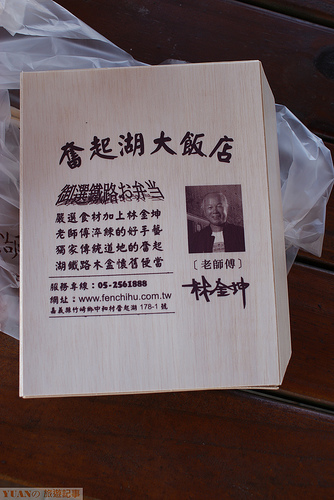 奮起湖大飯店
御選鐵路お弁当
嚴選食材加上林金坤
老師傅淬練的好手藝
獨家傳統道地的奮起
湖鐵路木盒懷舊便當
〔老師傅〕
林金坤
服務專線：05-2561888
網址：www.fenchihu.com.tw
嘉義縣竹崎鄉中和村奮起湖 178-1 號
YUANの 旅遊記事